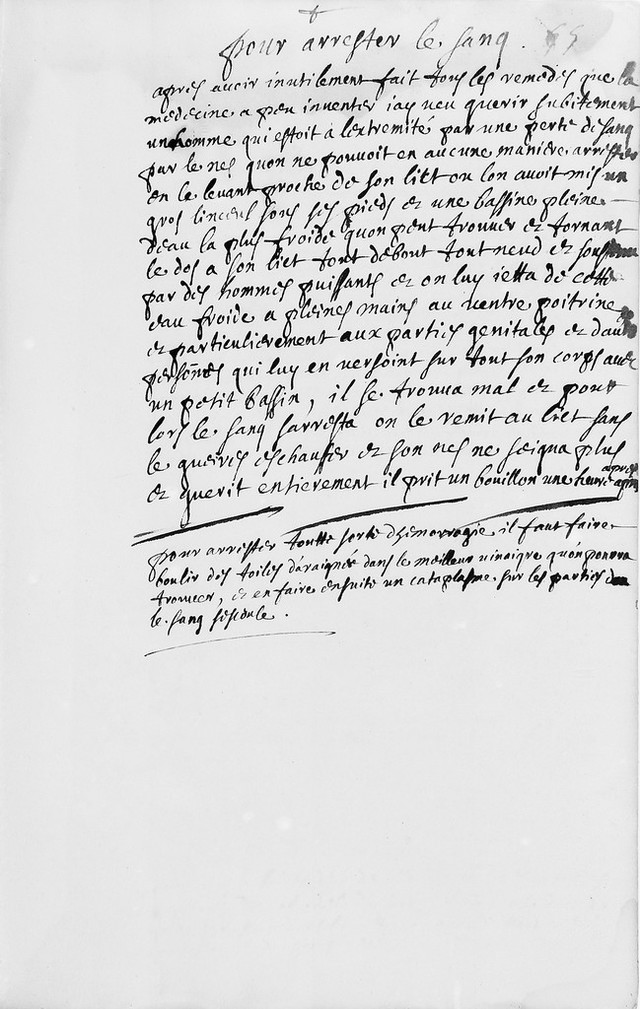 pour arrester le sang. 55
apres avoir inutilement fait tous les remedes que la
medecine a peu inventer iay veu querir subitement
un homme qui estoit à lextremité par une perte de sang
par le nes quon ne pouvoit en aucune maniere arrester
en le levant proche de son lict ou lon avoit mis un
gros linceul sous ses pieds et une bassine pleine
deau la plus froide quon peut trouver et tornant
le dos a son lict tout debout tout neud et soustenu
par des hommes puissants et on luy ietta de cette
eau froide a pleines mains au ventre poitrine
et particulierement aux parties genitales et dautres
personnes qui luy en versoint sur tout son corps avec
un petit bassin, il se trouva mal et pour
lors le sang sarresta on le remit au lict sans
le gueires eschauffer et son nes ne seigna plus
et guerit entierement il prit un bouillon une heure apres
pour arrester toutte sorte dhemorragie il faut faire
boulir des toiles daraignée dans le meilleur vinaigre quon pourra
trouver, et en faire ensuite un cataplasme sur les parties dou
le sang sescoule.